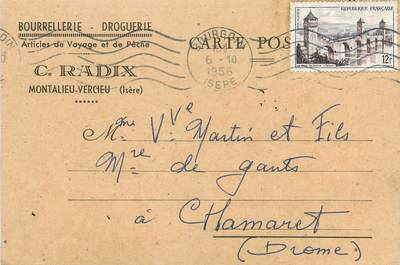 BOURRELLERIE - DROGUERIE
Articles de Voyage et de Pêche
C. RADIX
MONTALIEU-VERCIEU (Isère)
CARTE POS
BOURGOIN
6-10
1956
ISERE
REPUBLIQUE FRANÇAISE
12F
Mme Vve Martin et Fils
Mre de gants
à Chamaret
(Drome)